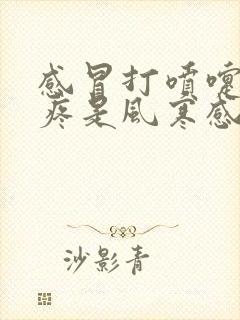 感冒打噴嚏
疼是風寒感
沙影青